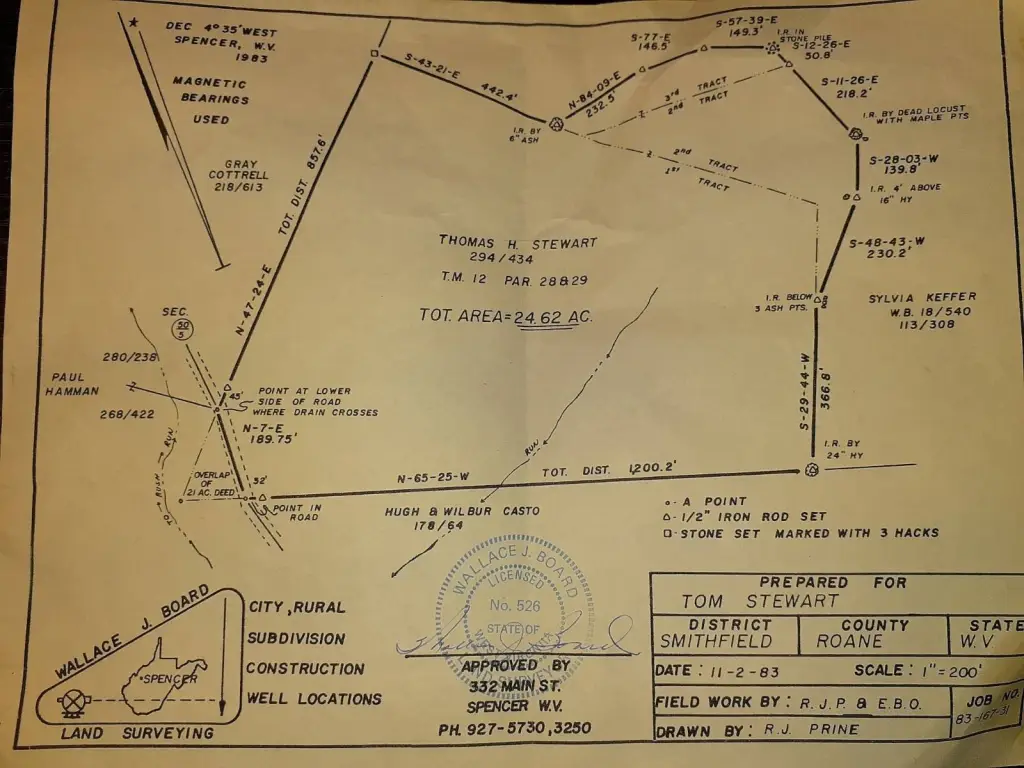 DEC 4°35' WEST
SPENCER, W.V.
1983
MAGNETIC
BEARINGS
USED
GRAY
COTTRELL
218/613
S-43-21-E
442.4'
I.R. BY
6" ASH
N-84-09-E
232.5'
S-77-E
146.5'
S-57-39-E
149.3'
I.R. IN
STONE PILE
S-12-26-E
50.8'
S-11-26-E
218.2'
I.R. BY DEAD LOCUST
WITH MAPLE PTS
S-28-03-W
139.8'
I.R. 4' ABOVE
16" HY
S-48-43-W
230.2'
3rd TRACT
2nd TRACT
2nd TRACT
1st TRACT
TOT. DIST. 857.6'
N-47-24-E
THOMAS H. STEWART
294/434
T.M. 12 PAR. 28&29
TOT. AREA=24.62 AC.
I.R. BELOW
3 ASH PTS.
SYLVIA KEFFER
W.B. 18/540
113/308
S-29-44-W
366.8'
I.R. BY
24" HY
SEC.
50
5
280/238
PAUL
HAMMAN
268/422
45'
POINT AT LOWER
SIDE OF ROAD
WHERE DRAIN CROSSES
N-7-E
189.75'
OVERLAP
OF
21 AC. DEED
32'
POINT IN
ROAD
TO → RUSH → RUN
RUN
N-65-25-W TOT. DIST. 1,200.2'
HUGH & WILBUR CASTO
178/64
- A POINT
- 1/2" IRON ROD SET
- STONE SET MARKED WITH 3 HACKS
WALLACE J. BOARD
SPENCER
LAND SURVEYING
CITY, RURAL
SUBDIVISION
CONSTRUCTION
WELL LOCATIONS
WALLACE J. BOARD
LICENSED
No. 526
STATE OF
WEST VIRGINIA
LAND SURVEYOR
APPROVED BY
332 MAIN ST.
SPENCER W.V.
PH. 927-5730,3250
PREPARED FOR
TOM STEWART
DISTRICT
SMITHFIELD
COUNTY
ROANE
STATE
W.V.
DATE : 11-2-83 SCALE : 1"=200'
FIELD WORK BY : R.J.P. & E.B.O.
DRAWN BY : R.J. PRINE
JOB NO.
83-167-31